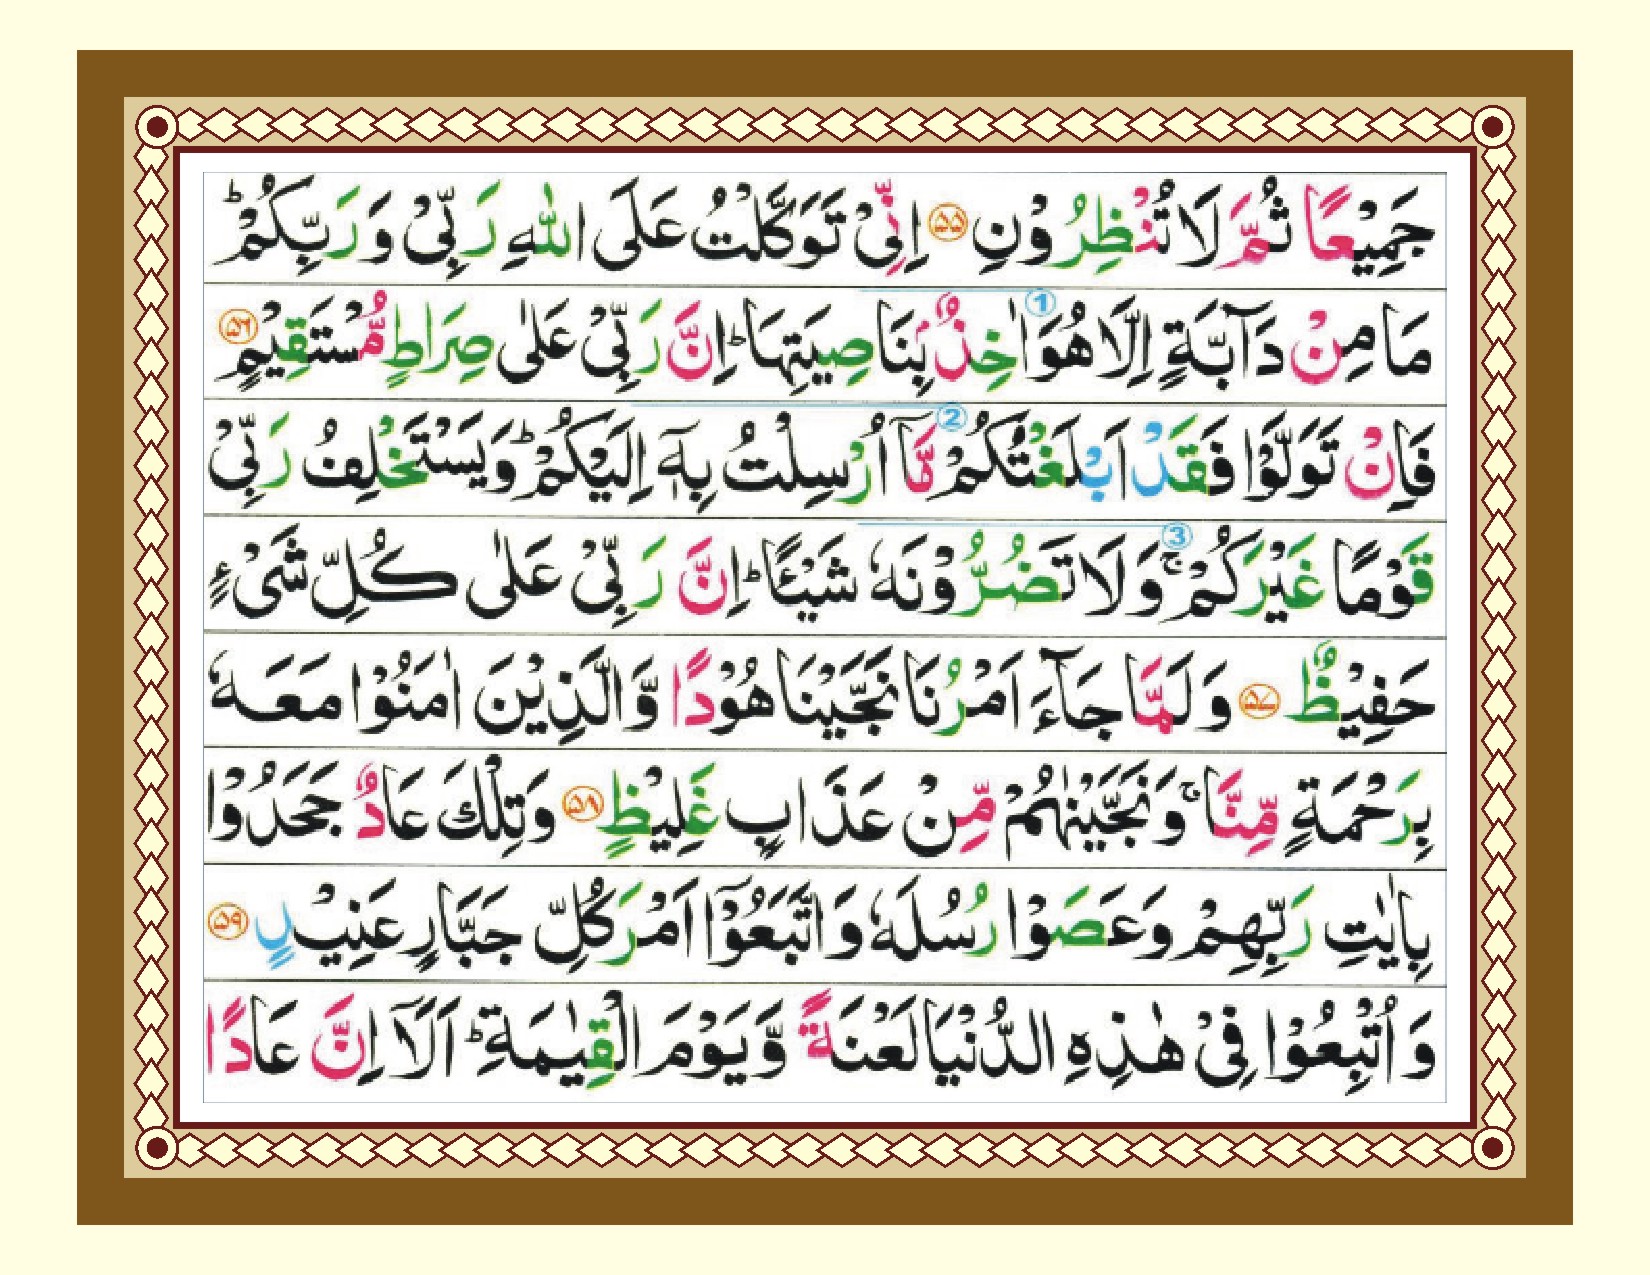 جَمِيْعًا ثُمَّ لَا تُنْظِرُوْنِ ۵۵ اِنِّىْ تَوَكَّلْتُ عَلَى اللّٰهِ رَبِّىْ وَرَبِّكُمْ ؕ
مَا مِنْ دَآبَّةٍ اِلَّا هُوَ 1 اٰخِذٌۢ بِنَاصِيَتِهَا ؕ اِنَّ رَبِّىْ عَلٰى صِرَاطٍ مُّسْتَقِيْمٍ ۵۶
فَاِنْ تَوَلَّوْا فَقَدْ اَبْلَغْتُكُمْ 2 مَّاۤ اُرْسِلْتُ بِهٖۤ اِلَيْكُمْ ؕ وَيَسْتَخْلِفُ رَبِّىْ
قَوْمًا غَيْرَكُمْ ۚ 3 وَلَا تَضُرُّوْنَهٗ شَيْـًٔا ؕ اِنَّ رَبِّىْ عَلٰى كُلِّ شَىْءٍ
حَفِيْظٌ ۵۷ وَلَمَّا جَآءَ اَمْرُنَا نَجَّيْنَا هُوْدًا وَّالَّذِيْنَ اٰمَنُوْا مَعَهٗ
بِرَحْمَةٍ مِّنَّا ۚ وَنَجَّيْنٰهُمْ مِّنْ عَذَابٍ غَلِيْظٍ ۵۸ وَتِلْكَ عَادٌ ۟ جَحَدُوْا
بِاٰيٰتِ رَبِّهِمْ وَعَصَوْا رُسُلَهٗ وَاتَّبَعُوْۤا اَمْرَ كُلِّ جَبَّارٍ عَنِيْدٍ ۵۹
وَاُتْبِعُوْا فِىْ هٰذِهِ الدُّنْيَا لَعْنَةً وَّيَوْمَ الْقِيٰمَةِ ؕ اَلَاۤ اِنَّ عَادًا